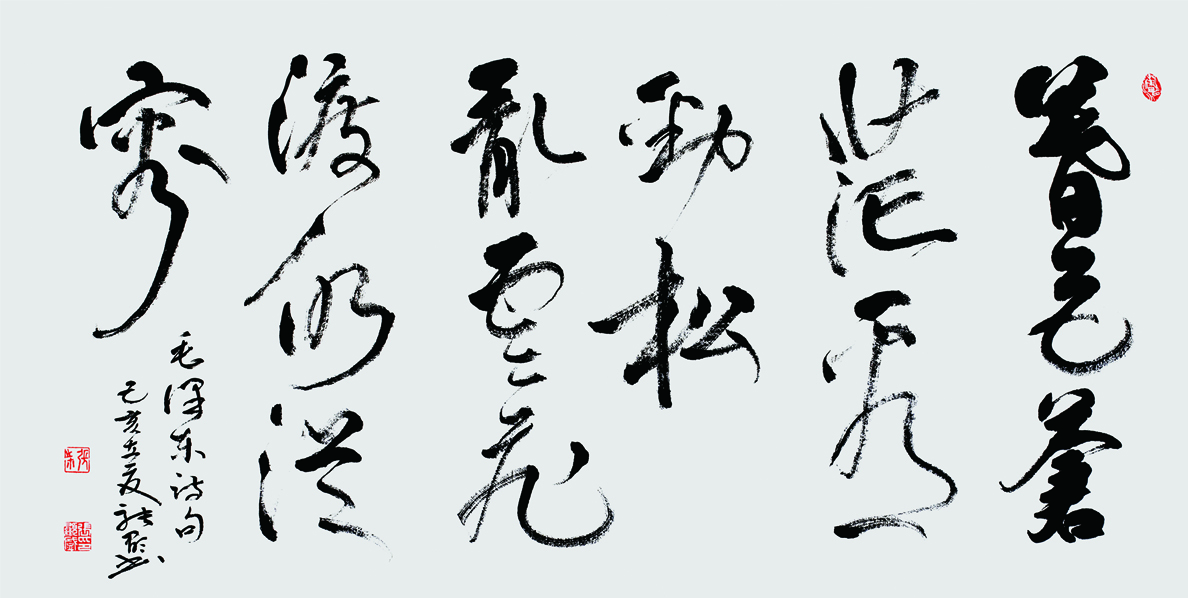 暮色蒼
茫看
勁松
亂雲飛
渡仍從
容
毛澤東詩句
己亥立夏